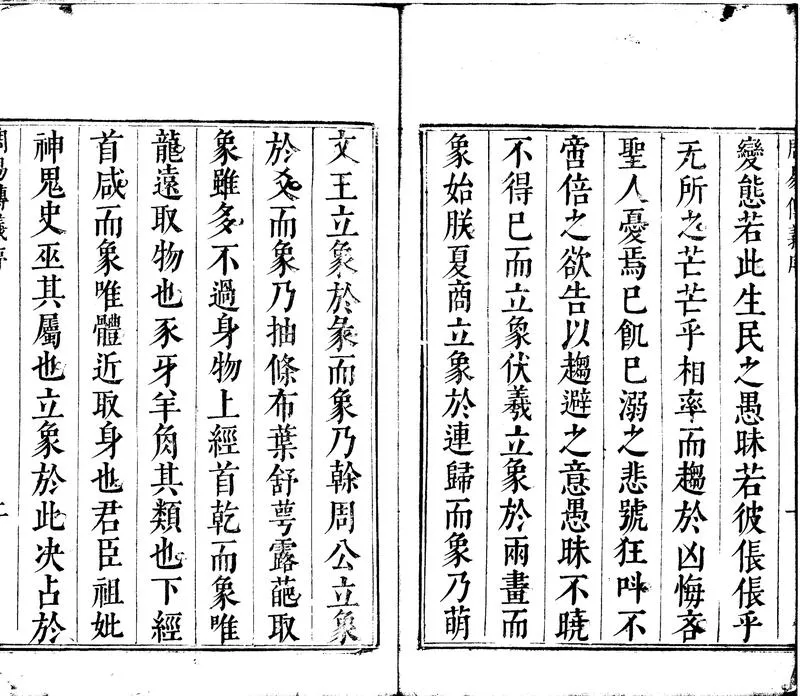 變態若此生民之愚昧若彼倀倀乎
无所之芒芒乎相率而趨於凶悔吝
聖人憂焉已飢已溺之悲號狂呌不
啻倍之欲告以趨避之意愚昧不曉
不得已而立象伏羲立象於兩畫而
象始朕夏商立象於連歸而象乃萌
文王立象於彖而象乃榦周公立象
於爻而象乃抽條布葉舒蕚露葩取
象雖多不過身物上經首乾而象唯
龍遠取物也豕牙羊角其類也下經
首咸而象唯體近取身也君臣祖妣
神鬼史巫其屬也立象於此决占於